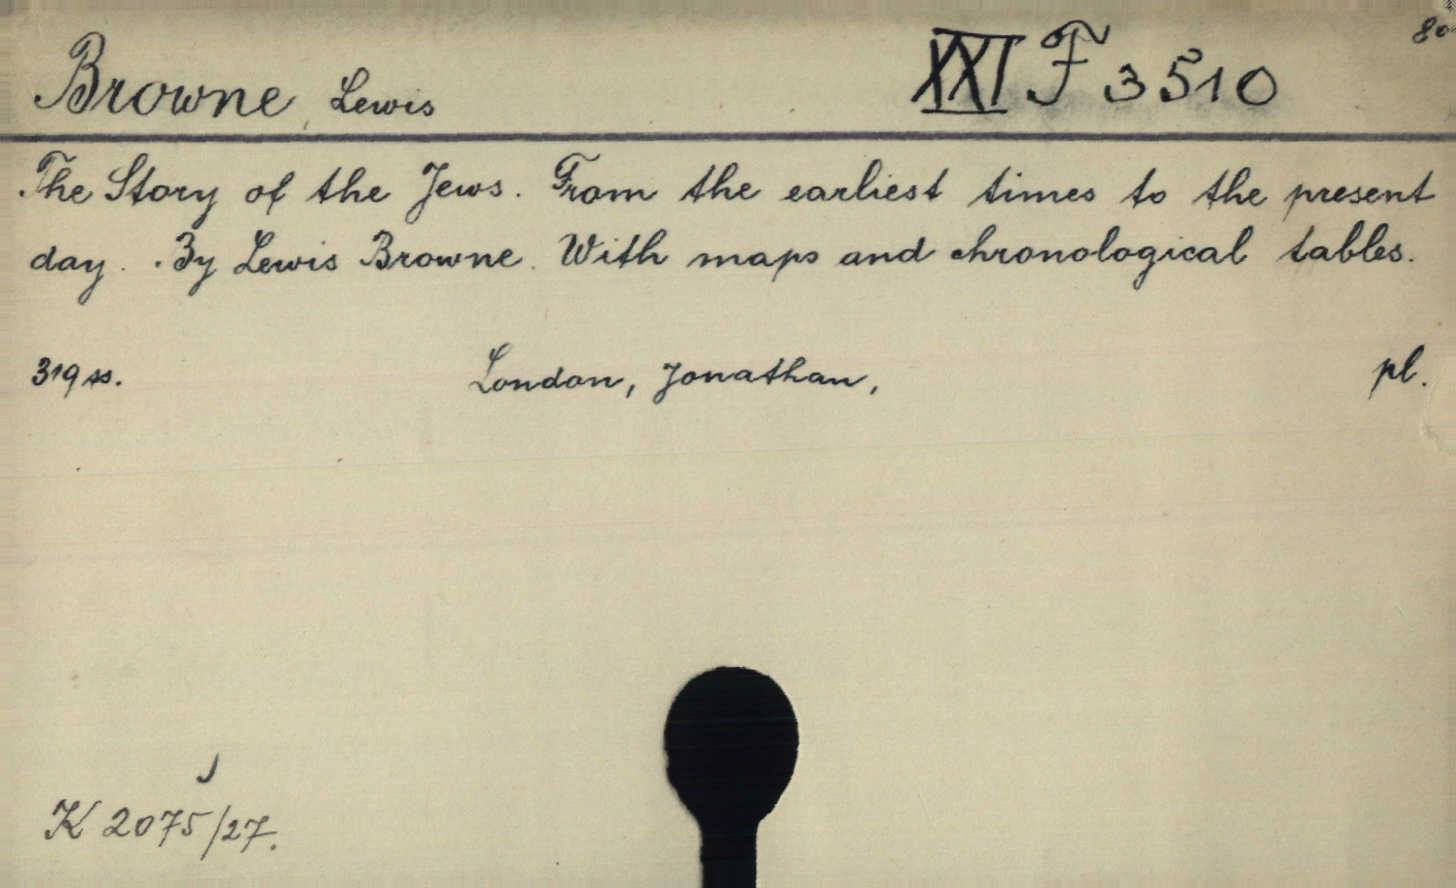 Browne, Lewis XXI F 3510 8°
The Story of the Jews. From the earliest times to the present
day. By Lewis Browne. With maps and chronological tables.
319 ss. London, Jonathan, pl.
K 2075/27.